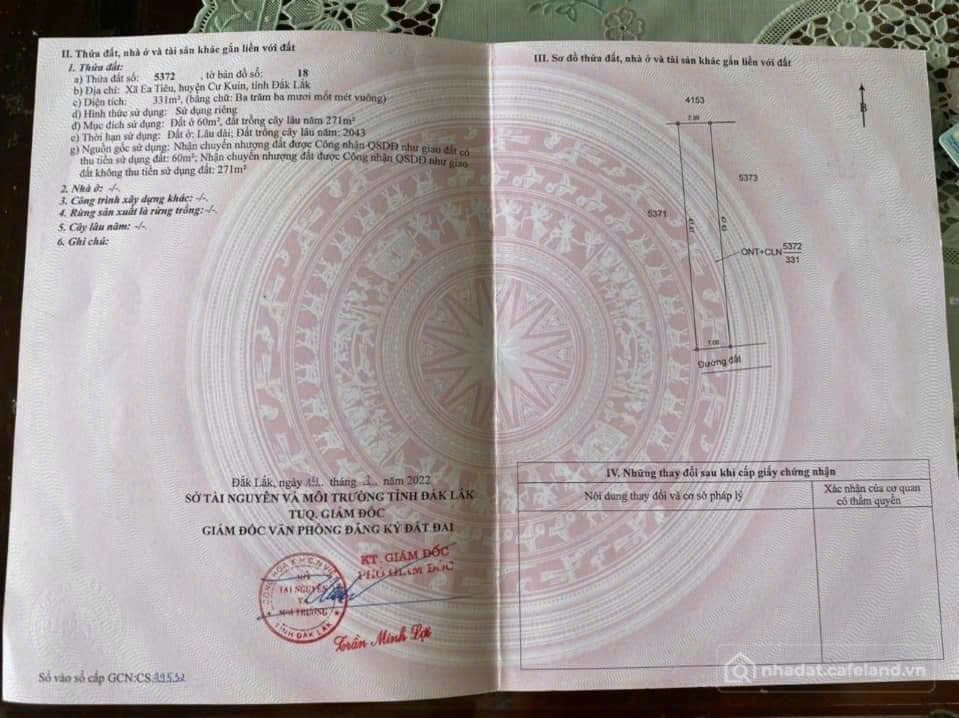 II. Thửa đất, nhà ở và tài sản khác gắn liền với đất
1. Thửa đất:
a) Thửa đất số: 5372 , tờ bản đồ số: 18
b) Địa chỉ: Xã Ea Tiêu, huyện Cư Kuin, tỉnh Đắk Lắk
c) Diện tích: 331m², (bằng chữ: Ba trăm ba mươi mốt mét vuông)
d) Hình thức sử dụng: Sử dụng riêng
đ) Mục đích sử dụng: Đất ở 60m², đất trồng cây lâu năm 271m²
e) Thời hạn sử dụng: Đất ở: Lâu dài; Đất trồng cây lâu năm: 2043
g) Nguồn gốc sử dụng: Nhận chuyển nhượng đất được Công nhận QSDĐ như giao đất có
thu tiền sử dụng đất: 60m²; Nhận chuyển nhượng đất được Công nhận QSDĐ như giao
đất không thu tiền sử dụng đất: 271m²
2. Nhà ở: -/-.
3. Công trình xây dựng khác: -/-.
4. Rừng sản xuất là rừng trồng: -/-.
5. Cây lâu năm: -/-.
6. Ghi chú:
Đắk Lắk, ngày tháng năm 2022
SỞ TÀI NGUYÊN VÀ MÔI TRƯỜNG TỈNH ĐẮK LẮK
TUQ. GIÁM ĐỐC
GIÁM ĐỐC VĂN PHÒNG ĐĂNG KÝ ĐẤT ĐAI
KT. GIÁM ĐỐC
PHÓ GIÁM ĐỐC
SỞ
TÀI NGUYÊN
VÀ
MÔI TRƯỜNG
TỈNH ĐẮK LẮK
Trần Minh Lợi
Số vào sổ cấp GCN:CS
III. Sơ đồ thửa đất, nhà ở và tài sản khác gắn liền với đất
4153
B
7.00
5373
5371
ONT+CLN 5372
331
7.00
Đường đất
IV. Những thay đổi sau khi cấp giấy chứng nhận
Nội dung thay đổi và cơ sở pháp lý
Xác nhận của cơ quan
có thẩm quyền
nhadat.cafeland.vn